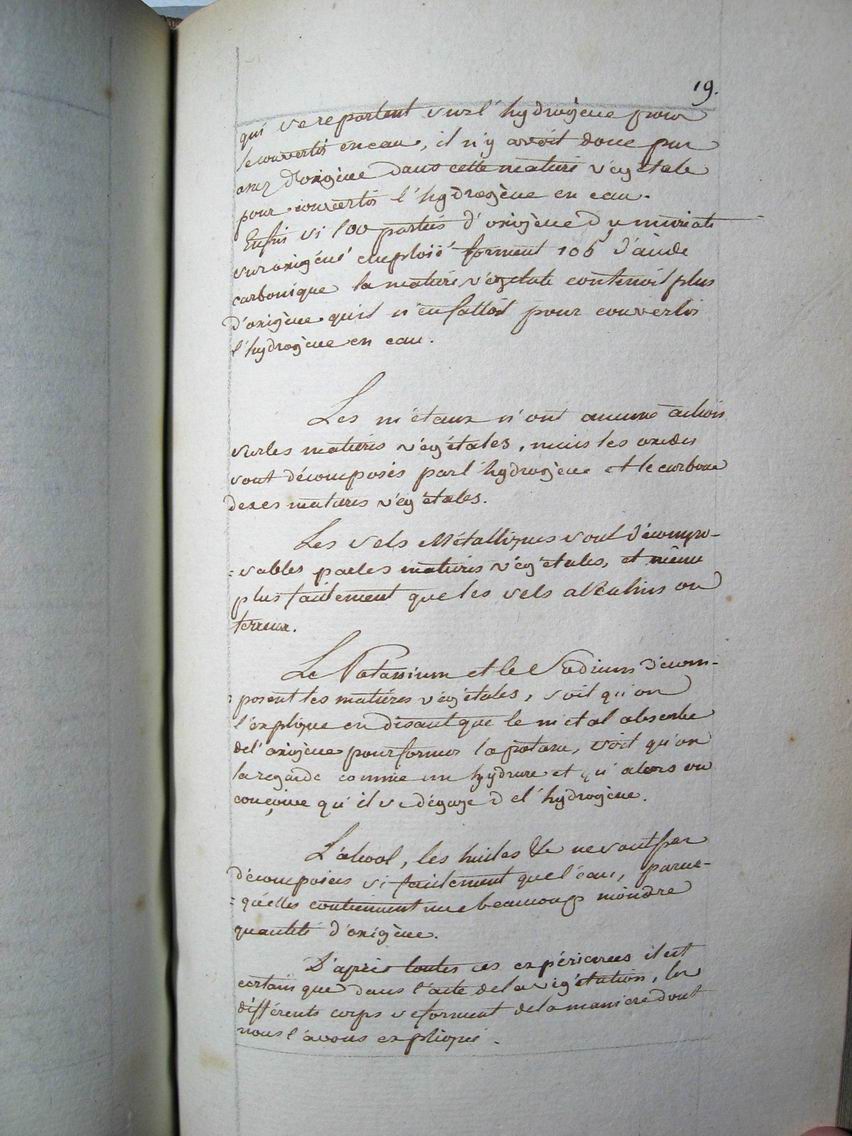 19.
qui se reportent sur l'hydrogène pour
se convertir en eau, il n'y avoit donc pas
assez d'oxigène dans cette matière végétale
pour convertir l'hydrogène en eau.
Enfin si 100 parties d'oxigène du muriate
suroxigéné emploié forment 106 d'acide
carbonique la matière végétale contenoit plus
d'oxigène qu'il n'en falloit pour convertir
l'hydrogène en eau.
Les métaux n'ont aucune action
sur les matières végétales, mais les oxides
sont décomposés par l'hydrogène et le carbone
de ces matières végétales.
Les sels Métalliques sont décompo-
=sables par les matières végétales, et même
plus facilement que les sels alkalins ou
terreux.
Le Potassium et le Sodium décom-
=posent les matières végétales, soit qu'on
l'explique en disant que le métal absorbe
de l'oxigène pour former la potasse, soit qu'on
la regarde comme un hydrure et qu'alors on
conçoive qu'il se dégage de l'hydrogène.
L'alcool, les huiles &c ne sont pas
décomposées si facilement que l'eau, parce-
=qu'elles contiennent une beaucoup moindre
quantité d'oxigène.
D'après toutes ces expériences il est
certain que dans l'acte de la végétation, les
différents corps se forment de la maniere dont
nous l'avons expliqué.